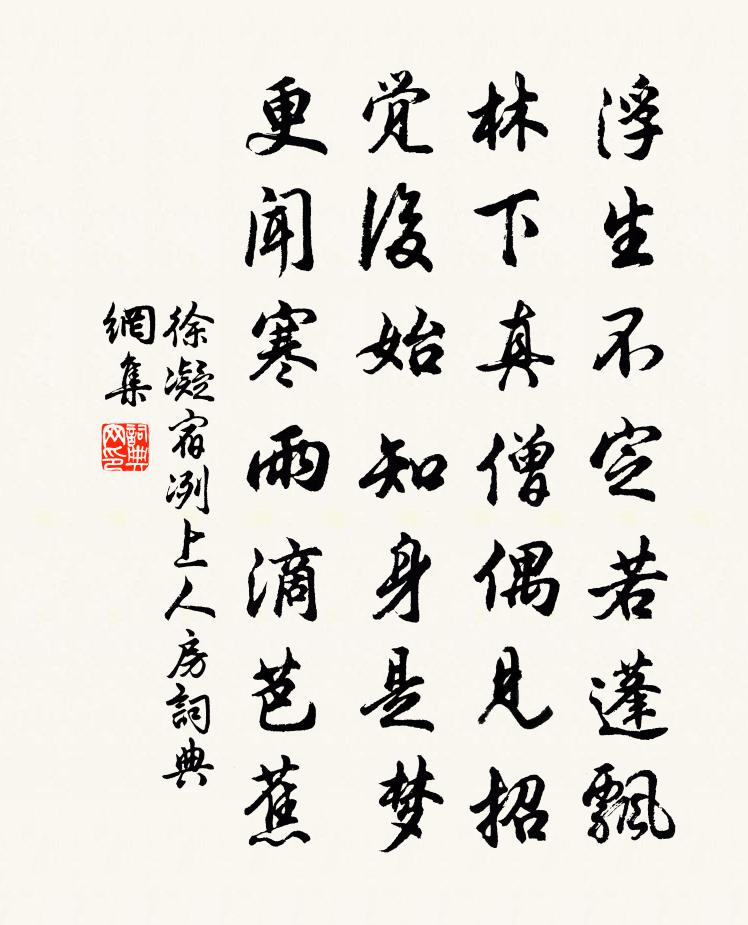 浮生不定若蓬飄
林下真僧偶見招
覚後始知身是梦
更闻寒雨滴芭蕉
徐凝宿冽上人房詞典
網集
詞典
网印